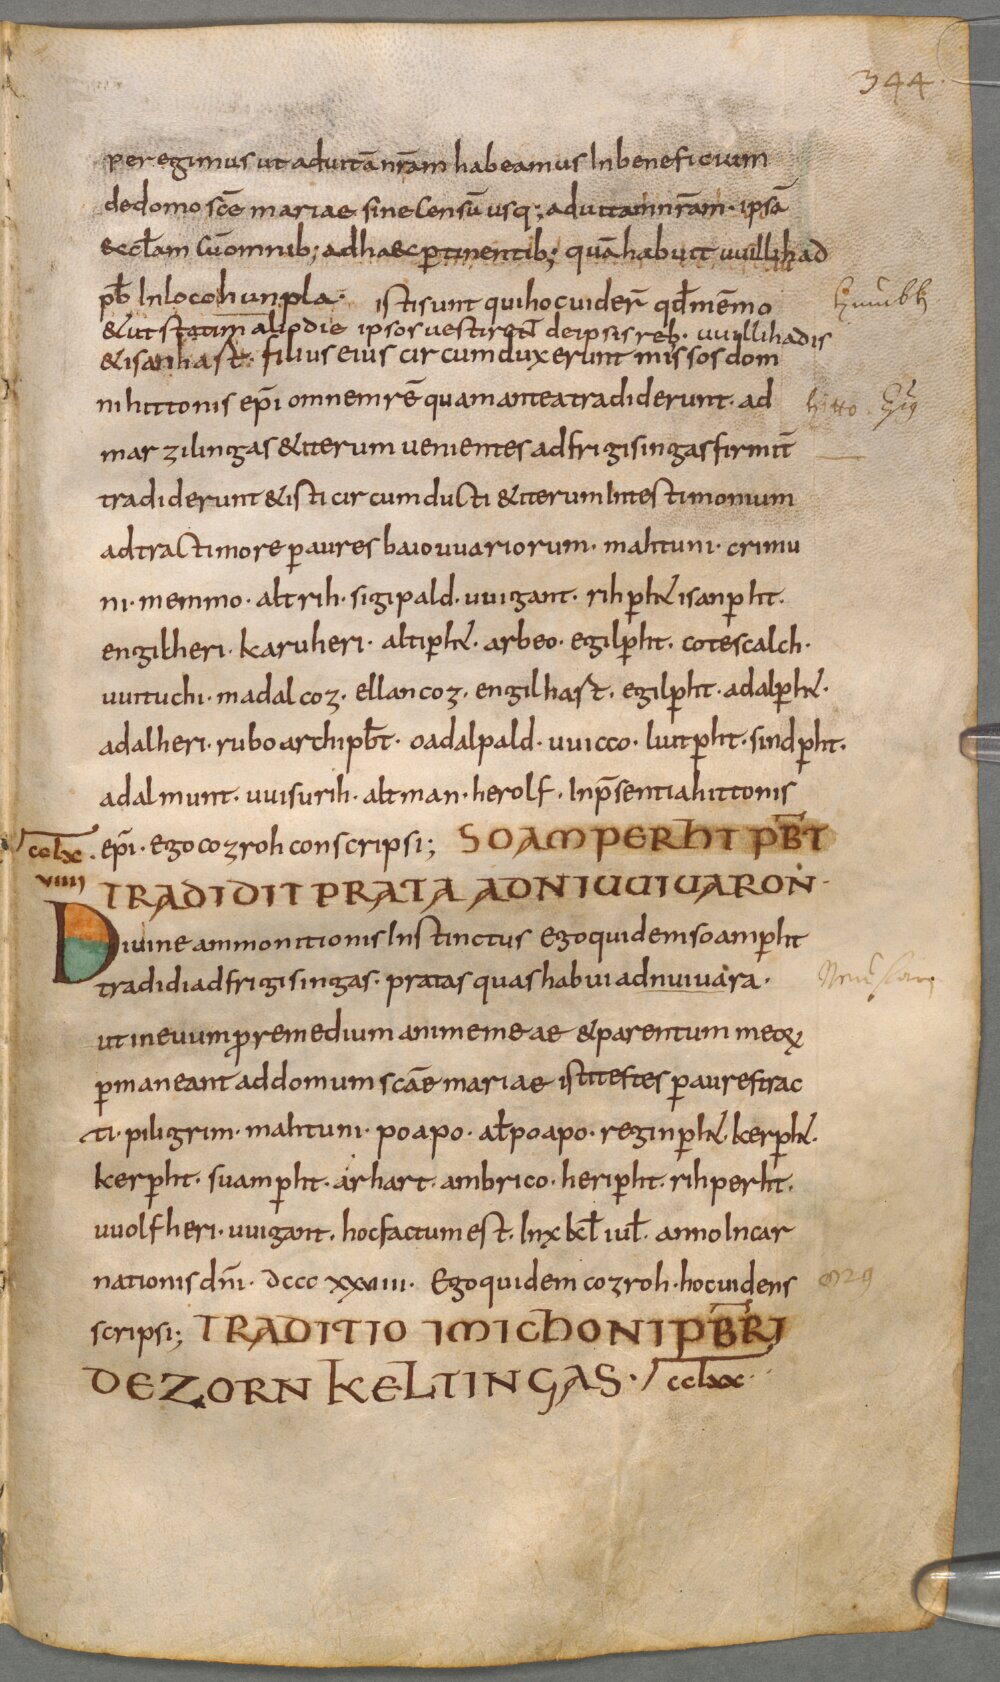 344.
peregimus ut aduitā nr̄am habeamus In beneficium
dedomo scē mariae sine censū usq; aduitam nr̄am · ipsā
&ccl̄am cū omnib; adhaec ꝑtinentib; quā habuit uuillihad
pb̄ In loco hunpla · isti sunt qui hoc uider̄ qd̄ mēmo
& ut statim alio die ipsos uestiret̄ de ipsis reb; uuillihadis
& isanhast · filius eius circumduxerunt missos dom
ni hittonis ep̄i omnem rē quam antea tradiderunt · ad
marzilingas & iterum uenientes ad frigisingas firmit̄
tradiderunt & isti circumducti & iterum In testimonium
adtracti more ꝑ aures baiouuariorum · mahtuni · crimu
ni · memmo · altrih · sigipald · uuigant · rihꝑht isanꝑht ·
engilheri · karuheri · altiꝑht · arbeo · egilꝑht · cotescalch ·
uuituchi · madalcoz · ellancoz · engilhast · egilꝑht · adalꝑht ·
adalheri · rubo archipb̄t · oadalpald · uuicco · liutꝑht · sindꝑht ·
adalmunt · uuisurih · altman · herolf · In p̄sentia hittonis
cclx
viiii
ep̄i · ego cozroh conscripsi; SOAMPERHT PB̄T
TRADIDIT PRATA AD NIUUIUARON ·
Diuine ammonitionis Instinctus ego quidem soamꝑht
tradidi ad frigisingas · pratas quas habui ad nuiuuara ·
ut in euum ꝓ remedium anime meae & parentum meoꝝ
ꝑmaneant ad domum scāe mariae isti testes ꝑ aures trac
ti · piligrim · mahtuni · poapo · alt̄poapo · reginꝑht · kerꝑht ·
kerꝑht · suamꝑht · arhart · ambrico · heriꝑht · rihperht ·
uuolfheri · uuigant · hoc factum est · In x kl̄ iul̄ · anno Incar
nationis dn̄i · dccc xxviiii · Ego quidem cozroh · hoc uidens
829
scripsi; TRADITIO IMICHONI PB̄RI
DE ZORNKELTINGAS · cclxx ·